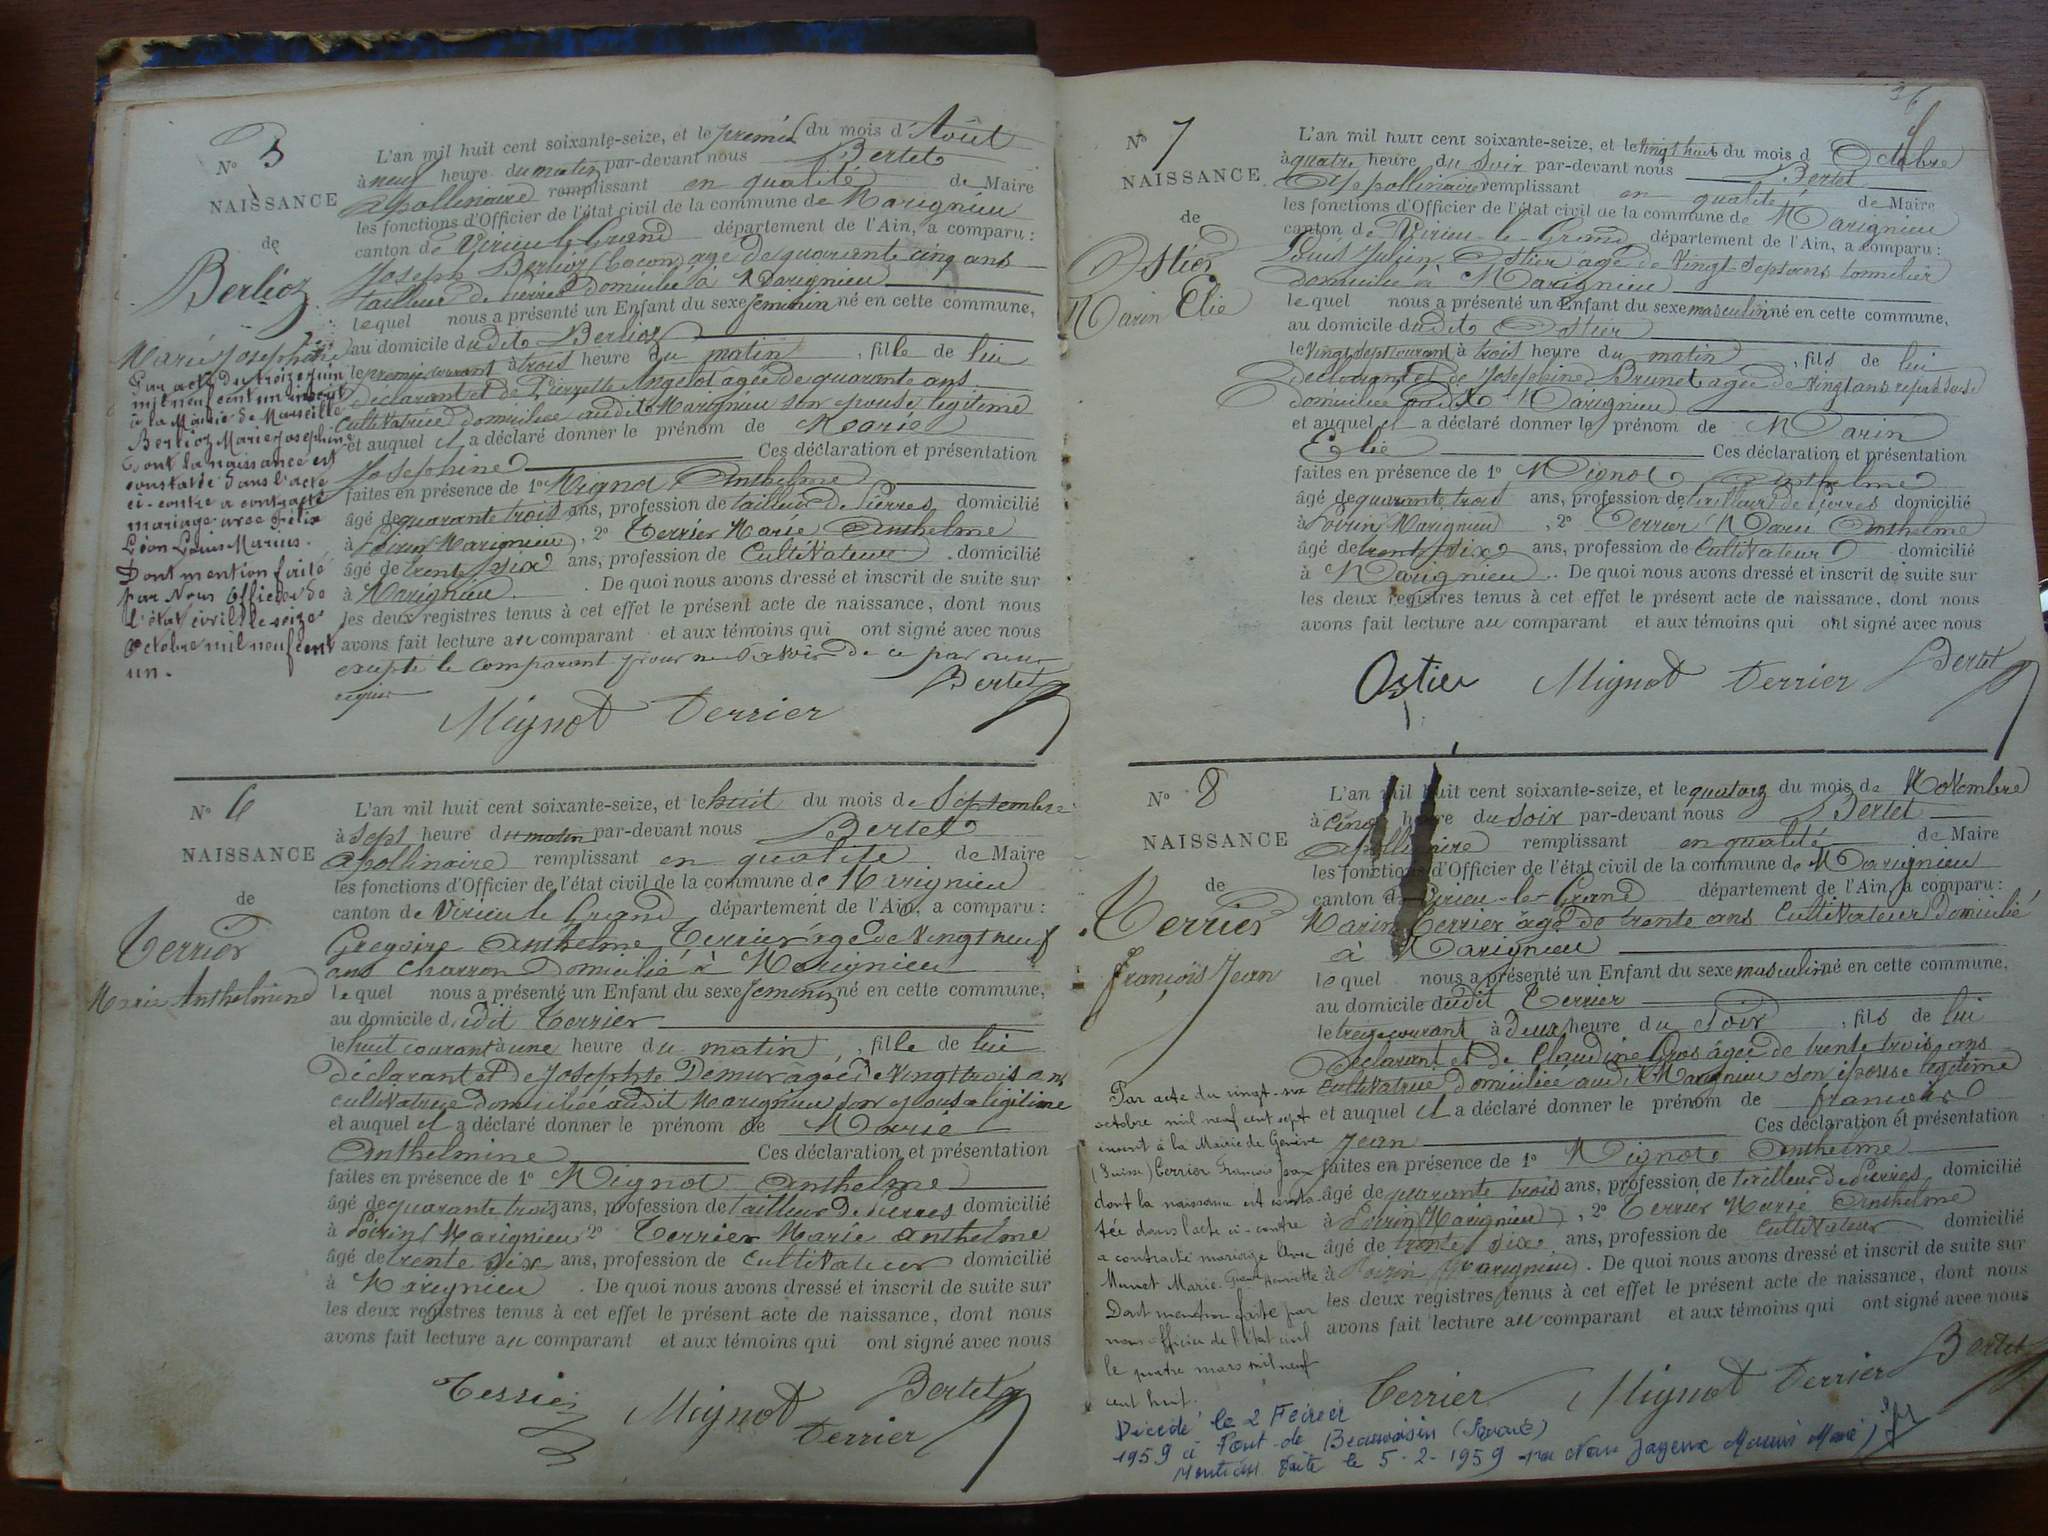 No 5
NAISSANCE
de
Berlioz
Marie Joséphine
Par acte du treize juin
mil neuf cent un inscrit
à la Mairie de Marseille
Berlioz Marie Josephine
dont la naissance est
constatée dans l'acte
ci-contre a contracté
mariage avec Félix
Léon Louis Marius.
Dont mention faite
par Nous Officier de
l'état civil le seize
Octobre mil neuf cent
un.
L'an mil huit cent soixante-seize, et le premier du mois d'Août
à neuf heure du matin par-devant nous Bertet
apollinaire remplissant en qualité de Maire
les fonctions d'Officier de l'état civil de la commune de Marignieu
canton de Virieu le Grand département de l'Ain, a comparu :
Joseph Berlioz agé de quarante cinq ans
tailleur de Pierres domicilié à Marignieu
lequel nous a présenté un Enfant du sexe feminin né en cette commune,
au domicile dudit Berlioz
le premier courant à trois heure du matin, fille de lui
déclarant et de Pierrette Angelot âgée de quarante ans
Cultivatrice domiciliée audit Marignieu son epouse légitime
et auquel il a déclaré donner le prénom de Marie
Josephine Ces déclaration et présentation
faites en présence de 1o Mignot Anthelme
âgé de quarante trois ans, profession de tailleur de Pierres domicilié
à Poirin Marignieu, 2o Terrier Marie Anthelme
âgé de trente six ans, profession de Cultivateur domicilié
à Marignieu. De quoi nous avons dressé et inscrit de suite sur
les deux registres tenus à cet effet le présent acte de naissance, dont nous
avons fait lecture au comparant et aux témoins qui ont signé avec nous
excepté le comparant pour ne savoir de ce par nous
requis
Bertet
Mignot Terrier
No 6
NAISSANCE
de
Terrier
Marie Anthelmine
L'an mil huit cent soixante-seize, et le huit du mois de Septembre
à sept heure du matin par-devant nous Bertet
apollinaire remplissant en qualité de Maire
les fonctions d'Officier de l'état civil de la commune de Marignieu
canton de Virieu le Grand département de l'Ain, a comparu :
Gregoire Anthelme Terrier âgé de Vingt neuf
ans Charron domicilié à Marignieu
lequel nous a présenté un Enfant du sexe feminin né en cette commune,
au domicile dudit Terrier
le huit courant à une heure du matin, fille de lui
déclarant et de Josephte Demur âgée de Vingt trois ans
cultivatrice domiciliée audit Marignieu son epouse légitime
et auquel il a déclaré donner le prénom de Marie
Anthelmine Ces déclaration et présentation
faites en présence de 1o Mignot Anthelme
âgé de quarante trois ans, profession de tailleur de Pierres domicilié
à Poirin Marignieu 2o Terrier Marie Anthelme
âgé de trente six ans, profession de Cultivateur domicilié
à Marignieu. De quoi nous avons dressé et inscrit de suite sur
les deux registres tenus à cet effet le présent acte de naissance, dont nous
avons fait lecture au comparant et aux témoins qui ont signé avec nous
Terrier Mignot Bertet
Terrier
No 7
NAISSANCE
de
Ostier
Marin Elie
L'an mil huit cent soixante-seize, et le vingt huit du mois d Octobre
à quatre heure du soir par-devant nous Bertet
Appollinaire remplissant en qualité de Maire
les fonctions d'Officier de l'état civil de la commune de Marignieu
canton de Virieu-le-Grand département de l'Ain, a comparu :
Louis Julien Ostier agé de Vingt-sept ans tonnelier
domicilié à Marignieu
lequel nous a présenté un Enfant du sexe masculin né en cette commune,
au domicile dudit Ostier
le Vingt sept courant à trois heure du matin, fils de lui
declarant et de Josephine Brunet agée de Vingt ans
domiciliée audit Marignieu
et auquel il a déclaré donner le prénom de Marin
Elie Ces déclaration et présentation
faites en présence de 1o Mignot Anthelme
âgé de quarante trois ans, profession de tailleur de Pierres domicilié
à Poirin Marignieu, 2o Terrier Marie Anthelme
âgé de trente six ans, profession de Cultivateur domicilié
à Marignieu. De quoi nous avons dressé et inscrit de suite sur
les deux registres tenus à cet effet le présent acte de naissance, dont nous
avons fait lecture au comparant et aux témoins qui ont signé avec nous
Ostier Mignot Terrier Bertet
No 8
NAISSANCE
de
Terrier
François Jean
Par acte du vingt-six
octobre mil neuf cent sept
inscrit à la Mairie de Genève
(Suisse) Terrier François Jean
dont la naissance est consta-
tée dans l'acte ci-contre
a contracté mariage avec
Marie Henriette
Dont mention faite par
nous officier de l'état civil
le quatre mars mil neuf
cent huit.
L'an mil huit cent soixante-seize, et le quatorze du mois de Novembre
à cinq heure du soir par-devant nous Bertet
apollinaire remplissant en qualité de Maire
les fonctions d'Officier de l'état civil de la commune de Marignieu
canton de Virieu-le-Grand département de l'Ain, a comparu :
Marin Terrier âgé de trente ans Cultivateur domicilié
à Marignieu
lequel nous a présenté un Enfant du sexe masculin né en cette commune,
au domicile dudit Terrier
le treize courant à deux heure du soir, fils de lui
déclarant et de Claudine Gros âgée de trente trois ans
cultivatrice domiciliée audit Marignieu son épouse légitime
et auquel il a déclaré donner le prénom de françois
Jean Ces déclaration et présentation
faites en présence de 1o Mignot Anthelme
âgé de quarante trois ans, profession de tailleur de Pierres domicilié
à Poirin (Marignieu), 2o Terrier Marie Anthelme
âgé de trente six ans, profession de Cultivateur domicilié
à Poirin (Marignieu). De quoi nous avons dressé et inscrit de suite sur
les deux registres tenus à cet effet le présent acte de naissance, dont nous
avons fait lecture au comparant et aux témoins qui ont signé avec nous
Terrier Mignot Terrier Bertet
Décédé le 2 Février
1959 à Pont-de Beauvoisin (Savoie)
Mention faite le 5-2-1959